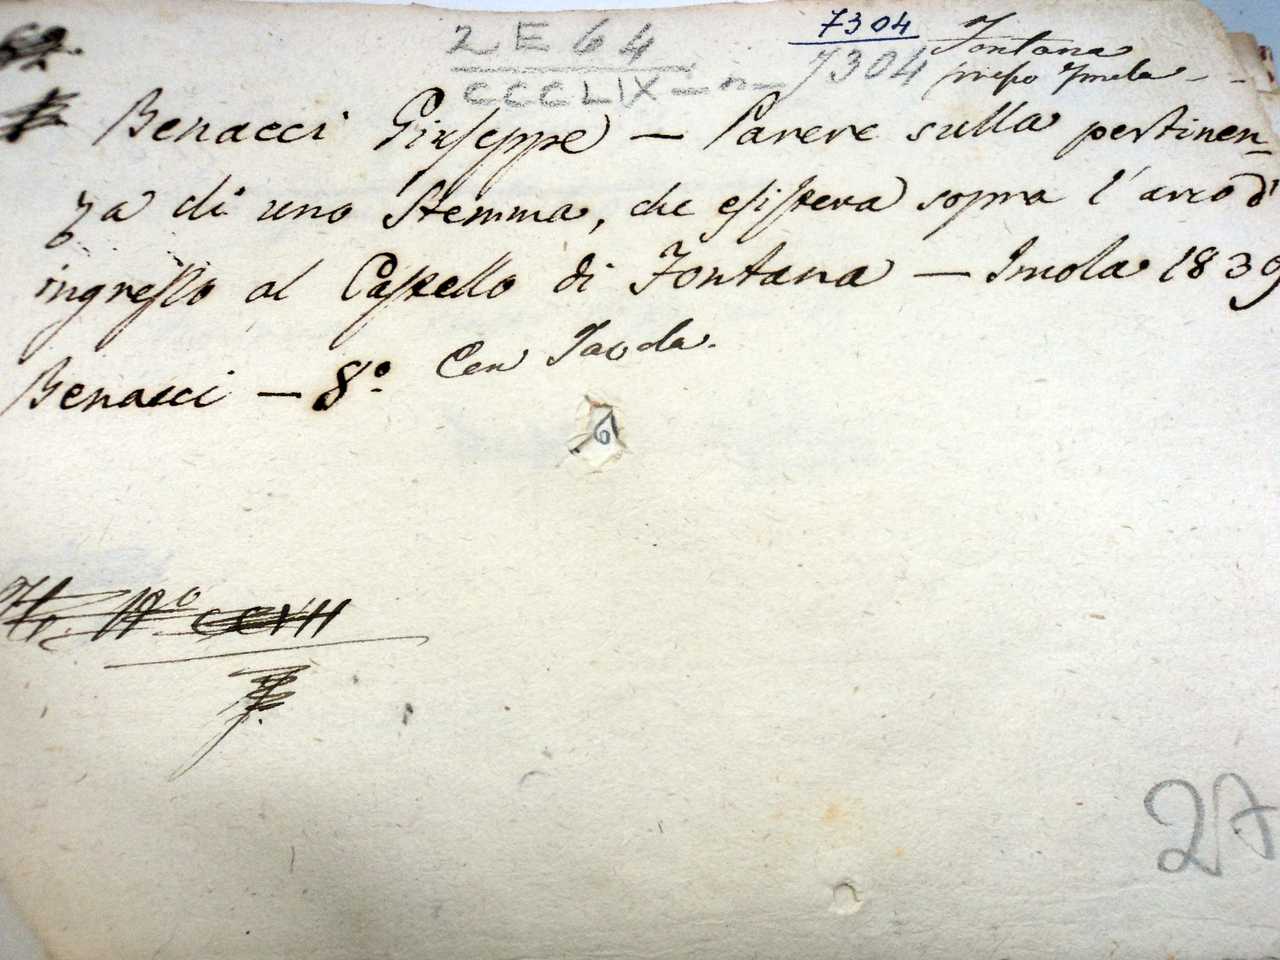 7304
2 E 64
7304
Fontana
CCCLIX
presso Imola - -
62.
Benacci Giuseppe — Parere sulla pertinen-
za di uno Stemma, che esisteva sopra l'arco d'
ingresso al Castello di Fontana — Imola 1839
Benacci — 8.º Con Tavola.
6
Nº CCVII
27